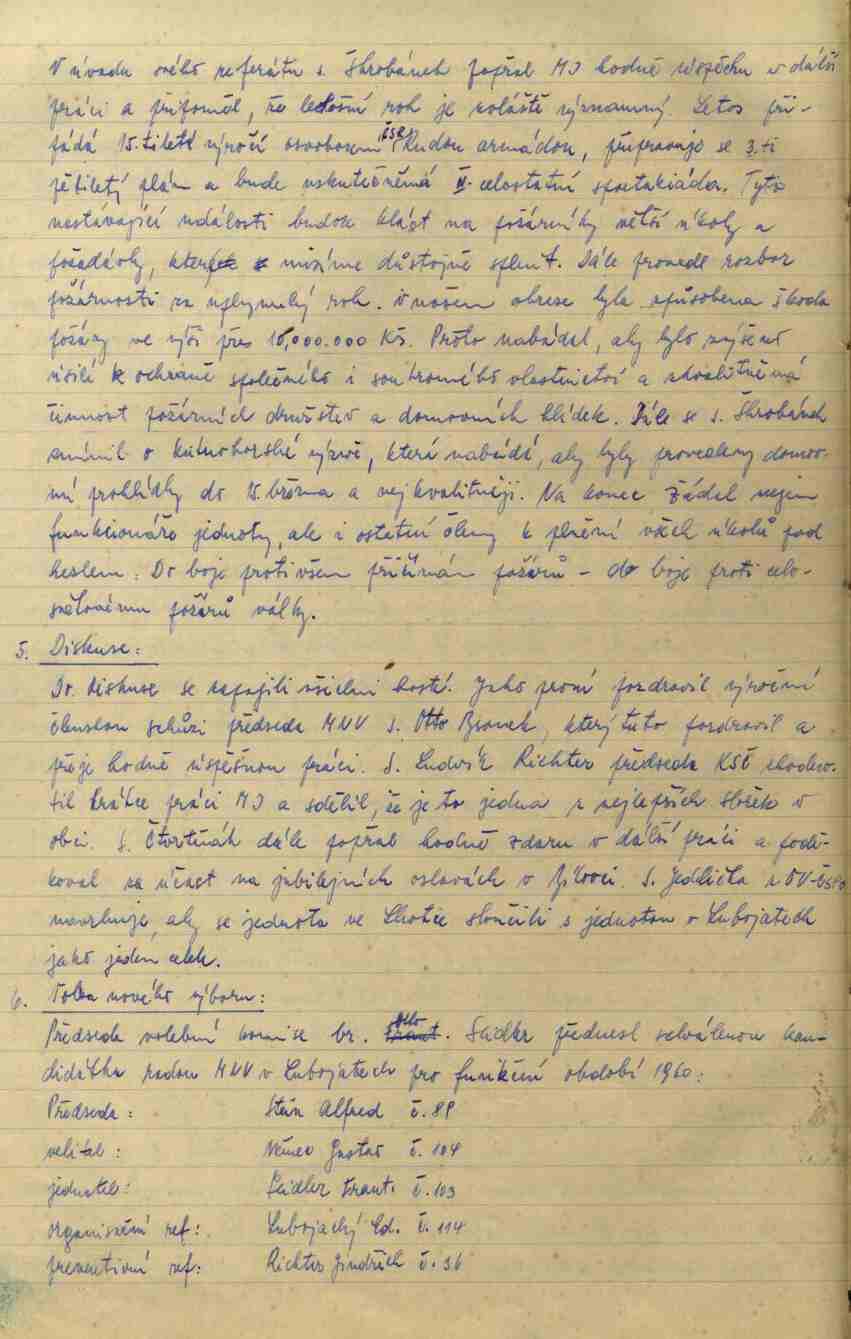 V úvodu svého referátu s. Škrobánek popřál MJ hodně úspěchu v další
práci a připoměl, že letošní rok je zvláště významný. Letos při-
pádá 15.tileté výročí osvobození ČSR Rudou armádou, připravuje se 3.tí
pětiletý plán a bude uskutečněná II. celostátní spartakiáda. Tyto
nastávající události budou klást na požárníky větší úkoly a
požadavky, které musíme důstojně splnit. Dále provedl rozbor
požárnosti za uplynulý rok. V našem okrese byla způsobena škoda
požáry ve výši přes 10,000.000 Kčs. Proto nabádal, aby bylo zvýšeno
úsilí k ochraně společného i soukromého vlastnictví a zkvalitněná
činnost požárních družstev a domovních hlídek. Dále se s. Škrobánek
zmínil o kutnohorské výzvě, která nabádá, aby byly provedeny domov-
ní prohlídky do 15. března a nejkvalitněji. Na konec žádal nejen
funkcionáře jednoty, ale i ostatní členy k plnění všech úkolů pod
heslem: Do boje proti všem příčinám požárů – do boje proti celo-
světovému požárů války.
5. Diskuse:
Do diskuse se zapojili všichni hosté. Jako první pozdravil výroční
členskou schůzi předseda MNV s. Otto Bronek, který tuto pozdravil a
přeje hodně úspěšnou práci. S. Ludvík Richter předseda KSČ zhodno-
til krátce práci MJ a sdělil, že je to jedna z nejlepších složek v
obci. S. Čtvrtňák dále popřál hodně zdaru v další práci a podě-
koval za účast na jubilejních oslavách v Bílovci. S. Jedlička z OV-ČSPO
navrhuje, aby se jednota ve Lhotce sloučili s jednotou v Lubojatech
jako jeden celek.
6. Volba nového výboru:
Předseda volební komise br. Otto Seidler přednesl schválenou kan-
didátku radou MNV v Lubojatech pro funkční období 1960:
Předseda: Stein Alfred č. 89
velitel: Němec Gustav č. 104
jednatel: Seidler Frant. č. 103
organisační ref: Lubojacký Ed. č. 114
preventivní ref: Richter Jindřich č. 36